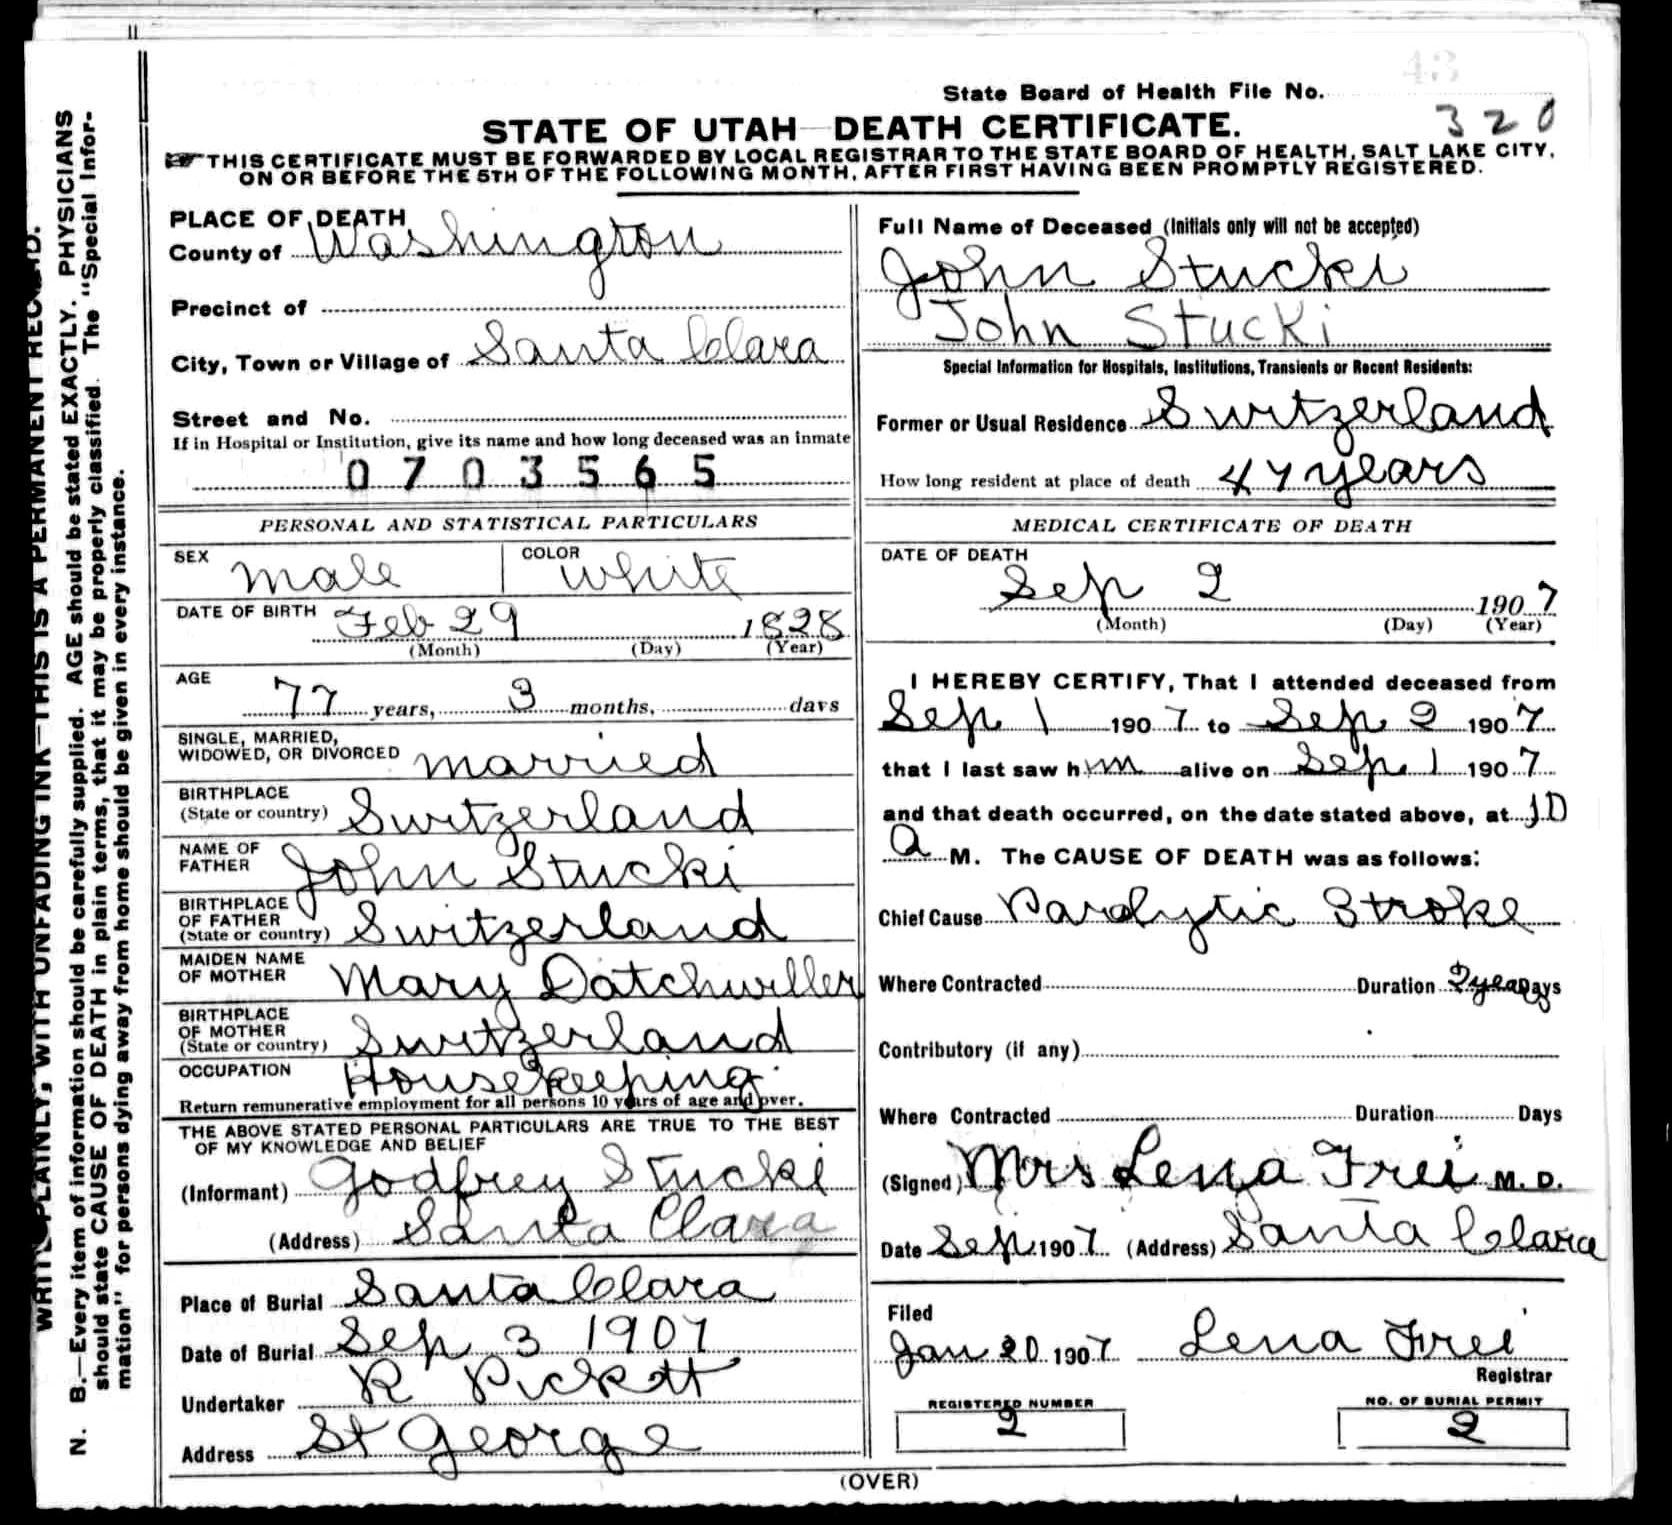 43
State Board of Health File No.
320
STATE OF UTAH—DEATH CERTIFICATE.
THIS CERTIFICATE MUST BE FORWARDED BY LOCAL REGISTRAR TO THE STATE BOARD OF HEALTH, SALT LAKE CITY,
ON OR BEFORE THE 5TH OF THE FOLLOWING MONTH, AFTER FIRST HAVING BEEN PROMPTLY REGISTERED.
WRITE PLAINLY, WITH UNFADING INK—THIS IS A PERMANENT RECORD.
N. B.—Every item of information should be carefully supplied. AGE should be stated EXACTLY. PHYSICIANS
should state CAUSE OF DEATH in plain terms, that it may be properly classified. The "Special Infor-
mation" for persons dying away from home should be given in every instance.
PLACE OF DEATH
County of Washington
Precinct of
City, Town or Village of Santa Clara
Street and No.
If in Hospital or Institution, give its name and how long deceased was an inmate
0703565
PERSONAL AND STATISTICAL PARTICULARS
SEX male COLOR white
DATE OF BIRTH Feb 29 1828
(Month) (Day) (Year)
AGE
77 years, 3 months, days
SINGLE, MARRIED,
WIDOWED, OR DIVORCED married
BIRTHPLACE
(State or country) Switzerland
NAME OF
FATHER John Stucki
BIRTHPLACE
OF FATHER
(State or country) Switzerland
MAIDEN NAME
OF MOTHER Mary Datchwiller
BIRTHPLACE
OF MOTHER
(State or country) Switzerland
OCCUPATION Housekeeping
Return remunerative employment for all persons 10 years of age and over.
THE ABOVE STATED PERSONAL PARTICULARS ARE TRUE TO THE BEST
OF MY KNOWLEDGE AND BELIEF
(Informant) Godfrey Stucki
(Address) Santa Clara
Place of Burial Santa Clara
Date of Burial Sep 3 1907
Undertaker R Pickett
Address St George
Full Name of Deceased (Initials only will not be accepted)
John Stucki
John Stucki
Special Information for Hospitals, Institutions, Transients or Recent Residents:
Former or Usual Residence Switzerland
How long resident at place of death 47 years
MEDICAL CERTIFICATE OF DEATH
DATE OF DEATH
Sep 2 1907
(Month) (Day) (Year)
I HEREBY CERTIFY, That I attended deceased from
Sep 1 1907 to Sep 2 1907
that I last saw him alive on Sep 1 1907
and that death occurred, on the date stated above, at 10
a M. The CAUSE OF DEATH was as follows:
Chief Cause Paralytic Stroke
Where Contracted Duration 2 year Days
Contributory (if any)
Where Contracted Duration Days
(Signed) Mrs Lena Frei M. D.
Date Sep 1907 (Address) Santa Clara
Filed
Jan 20 1907 Lena Frei
Registrar
REGISTERED NUMBER
2
NO. OF BURIAL PERMIT
2
(OVER)